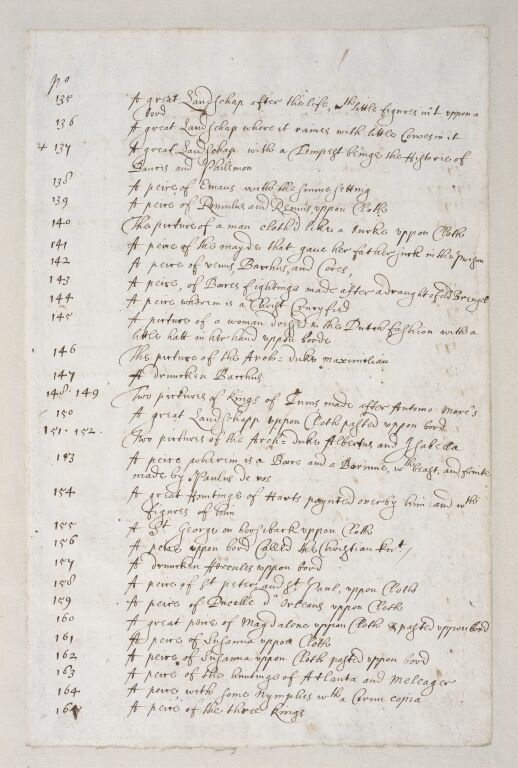 No
135 A great Landschap after the life, wth little figures in't uppon a
bord
136 A great Landschap where it raines with little Cowes in it
+ 137 A great Landschap with a Tempest beinge the Historie of
Baucis and Philemon
138 A peice of Emaus with the sunne setting
139 A peice of Romulus and Remus uppon Cloth
140 The picture of a man cloth'd like a Turke uppon Cloth
141 A peice of the mayde that gave her father suck in the prison
142 A peice of venus, Bacchus, and Ceres,
143 A peice, of Bores fightings made after a draught of old Breugel
144 A peice wherein is a Christ Crucyfied
145 A picture of a woman dressd in the Dutch fashion with a
little hatt in her hand uppon borde
146 The picture of the Arch-duke maximilian
147 A druncken Bacchus
148. 149 Two pictures of Kings of Tunis made after Antonio More's
150 A great Landschapp uppon Cloth pasted uppon bord
151. 152. Two pictures of the Arch-duke Albertus and Isabella
153 A peice wherein is a Bore and a wth beast, and fruite
made by Paulus de vos
154 A great huntinge of Harts paynted over by him and wth
figures of him
155 A St. George on horseback uppon Cloth
156 A peice uppon bord called the Christian Knt
157 A druncken Hercules uppon bord
158 A peice of St peter and St Paul, uppon Cloth
159 A peice of Pucelle d'Orleans uppon Cloth
160 A great peice of Magdalene uppon Cloth & pasted uppon bord
161 A peice of Susanna uppon Cloth
162 A peice of Susanna uppon Cloth pasted uppon bord
163 A peice of the huntinge of Atlanta and Meleager
164 A peice with some Nymphes wth a Cornu copia
165 A peice of the three Kings